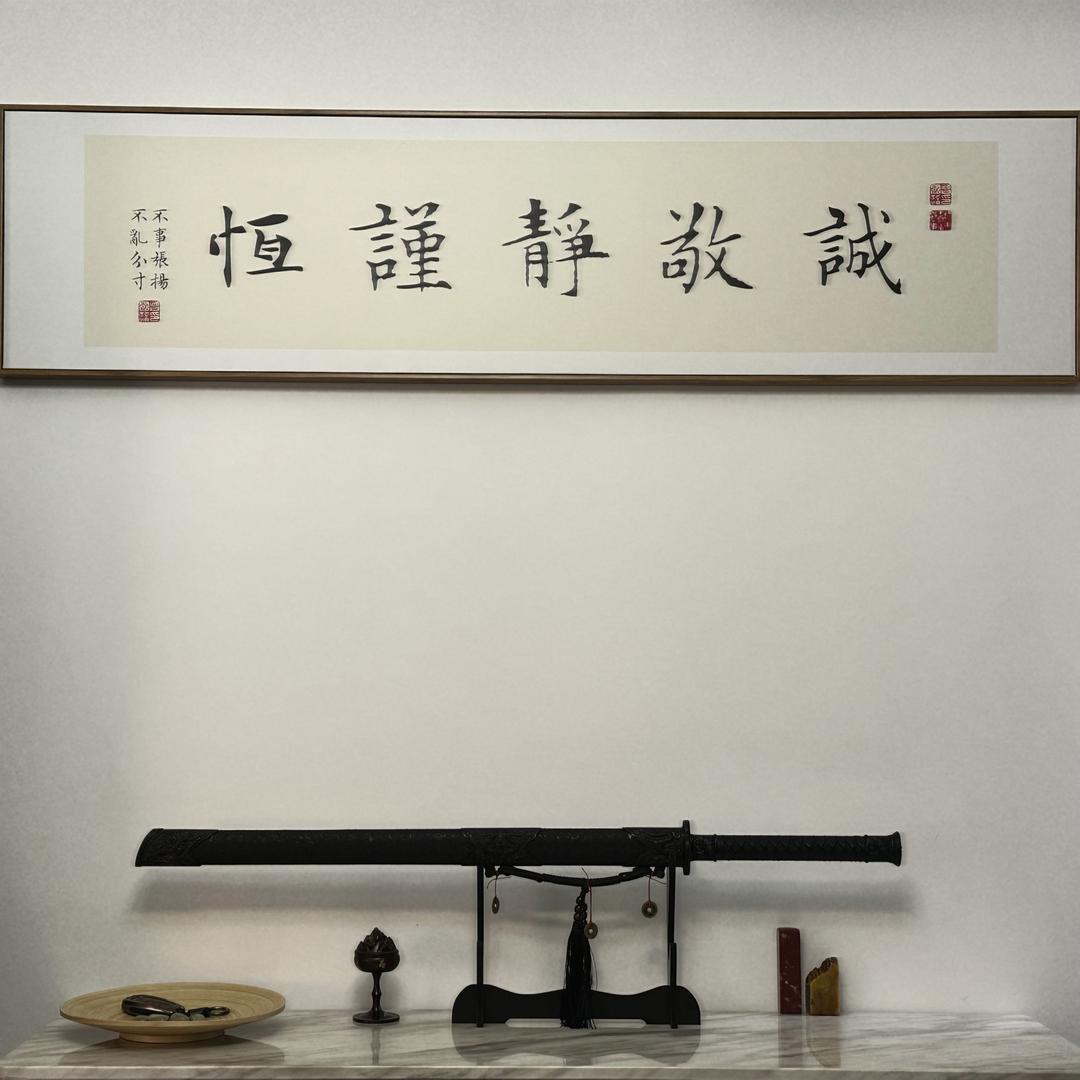 誠敬靜謹恒
不事張揚
不亂分寸